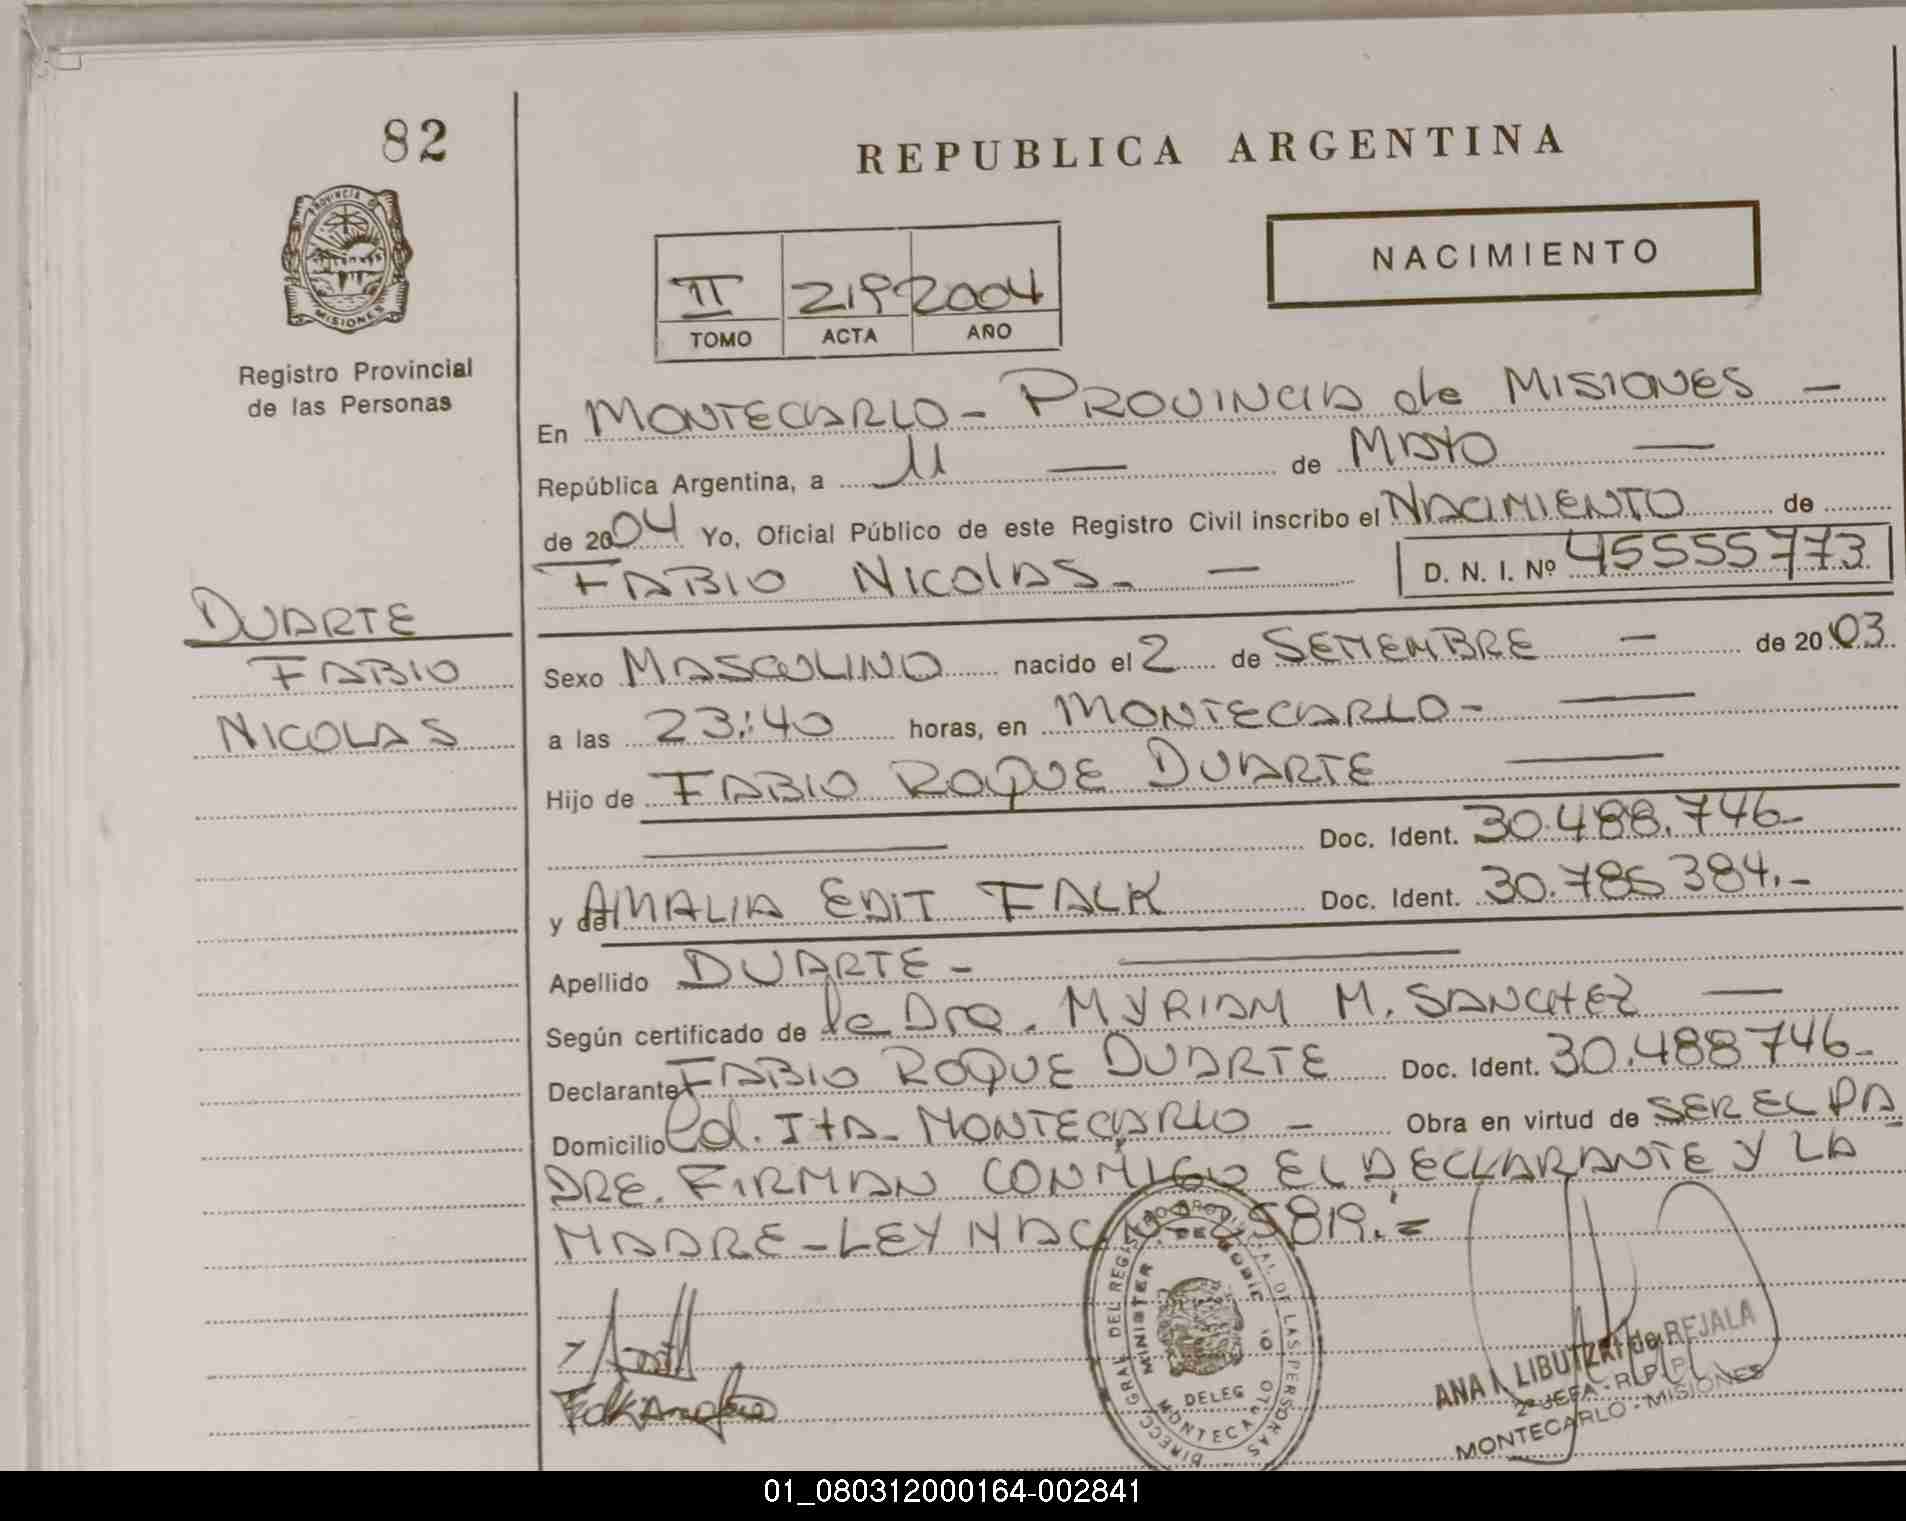 82
REPUBLICA ARGENTINA
PROVINCIA D
MISIONES
NACIMIENTO
II 219 2004
TOMO ACTA AÑO
Registro Provincial
de las Personas
En MONTECARLO - PROVINCIA de MISIONES —
República Argentina, a 11 — de MAYO —
de 2004 Yo, Oficial Público de este Registro Civil inscribo el NACIMIENTO de
FABIO NICOLAS. — D. N. I. Nº 45555773
DUARTE
FABIO
NICOLAS
Sexo MASCULINO nacido el 2 de SETIEMBRE — de 2003
a las 23:40 horas, en MONTECARLO- —
Hijo de FABIO ROQUE DUARTE —
— Doc. Ident. 30.488.746-
y de AMALIA EDIT FALK Doc. Ident. 30.785 384.-
Apellido DUARTE - —
Según certificado de la Dra. MYRIAM M. SANCHEZ —
Declarante FABIO ROQUE DUARTE Doc. Ident. 30.488746-
Domicilio Cd. ITA- MONTECARLO - Obra en virtud de SER EL PA
DRE. FIRMAN CONMIGO EL DECLARANTE Y LA
MADRE - LEY NAC 25819.=
DIRECC GRAL DEL REGISTRO PROVINCIAL DE LAS PERSONAS
MINISTER DE GOBIE
DELEG
MONTECARLO
ANA I. LIBUTZKI de REJALA
2ª JEFA - R.P.P.
MONTECARLO - MISIONES
01_080312000164-002841